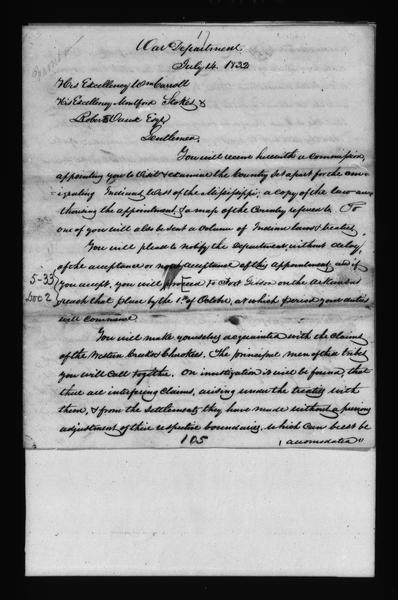 War Department
July 14. 1832
His Excellency Wm Carroll
His Excellency Montford Stokes &
Robert Vaux Esqr
Gentlemen,
You will receive herewith a commission,
appointing you to visit & examine the Country set apart for the emi-
grating Indians West of the Mississippi; a copy of the law au-
thorizing the appointment, & a map of the Country referred to. To
one of you will also be sent a volume of Indian laws & treaties.
You will please to notify the department, without delay,
of the acceptance or non acceptance of this appointment, and if
5-33
Doc 2
you accept, you will proceed to Fort Gibson on the Arkansas &
reach that place by the 1st of October, at which period your duties
will commence.
You will make yourselves acquainted with the claims
of the Western Creeks & Cherokees. The principal men of those tribes
you will call together. On investigation it will be found, that
there are interfering claims, arising under the treaties with
them, & from the settlements they have made without a previous
adjustment of their respective boundaries, which can best be
105
accomodated